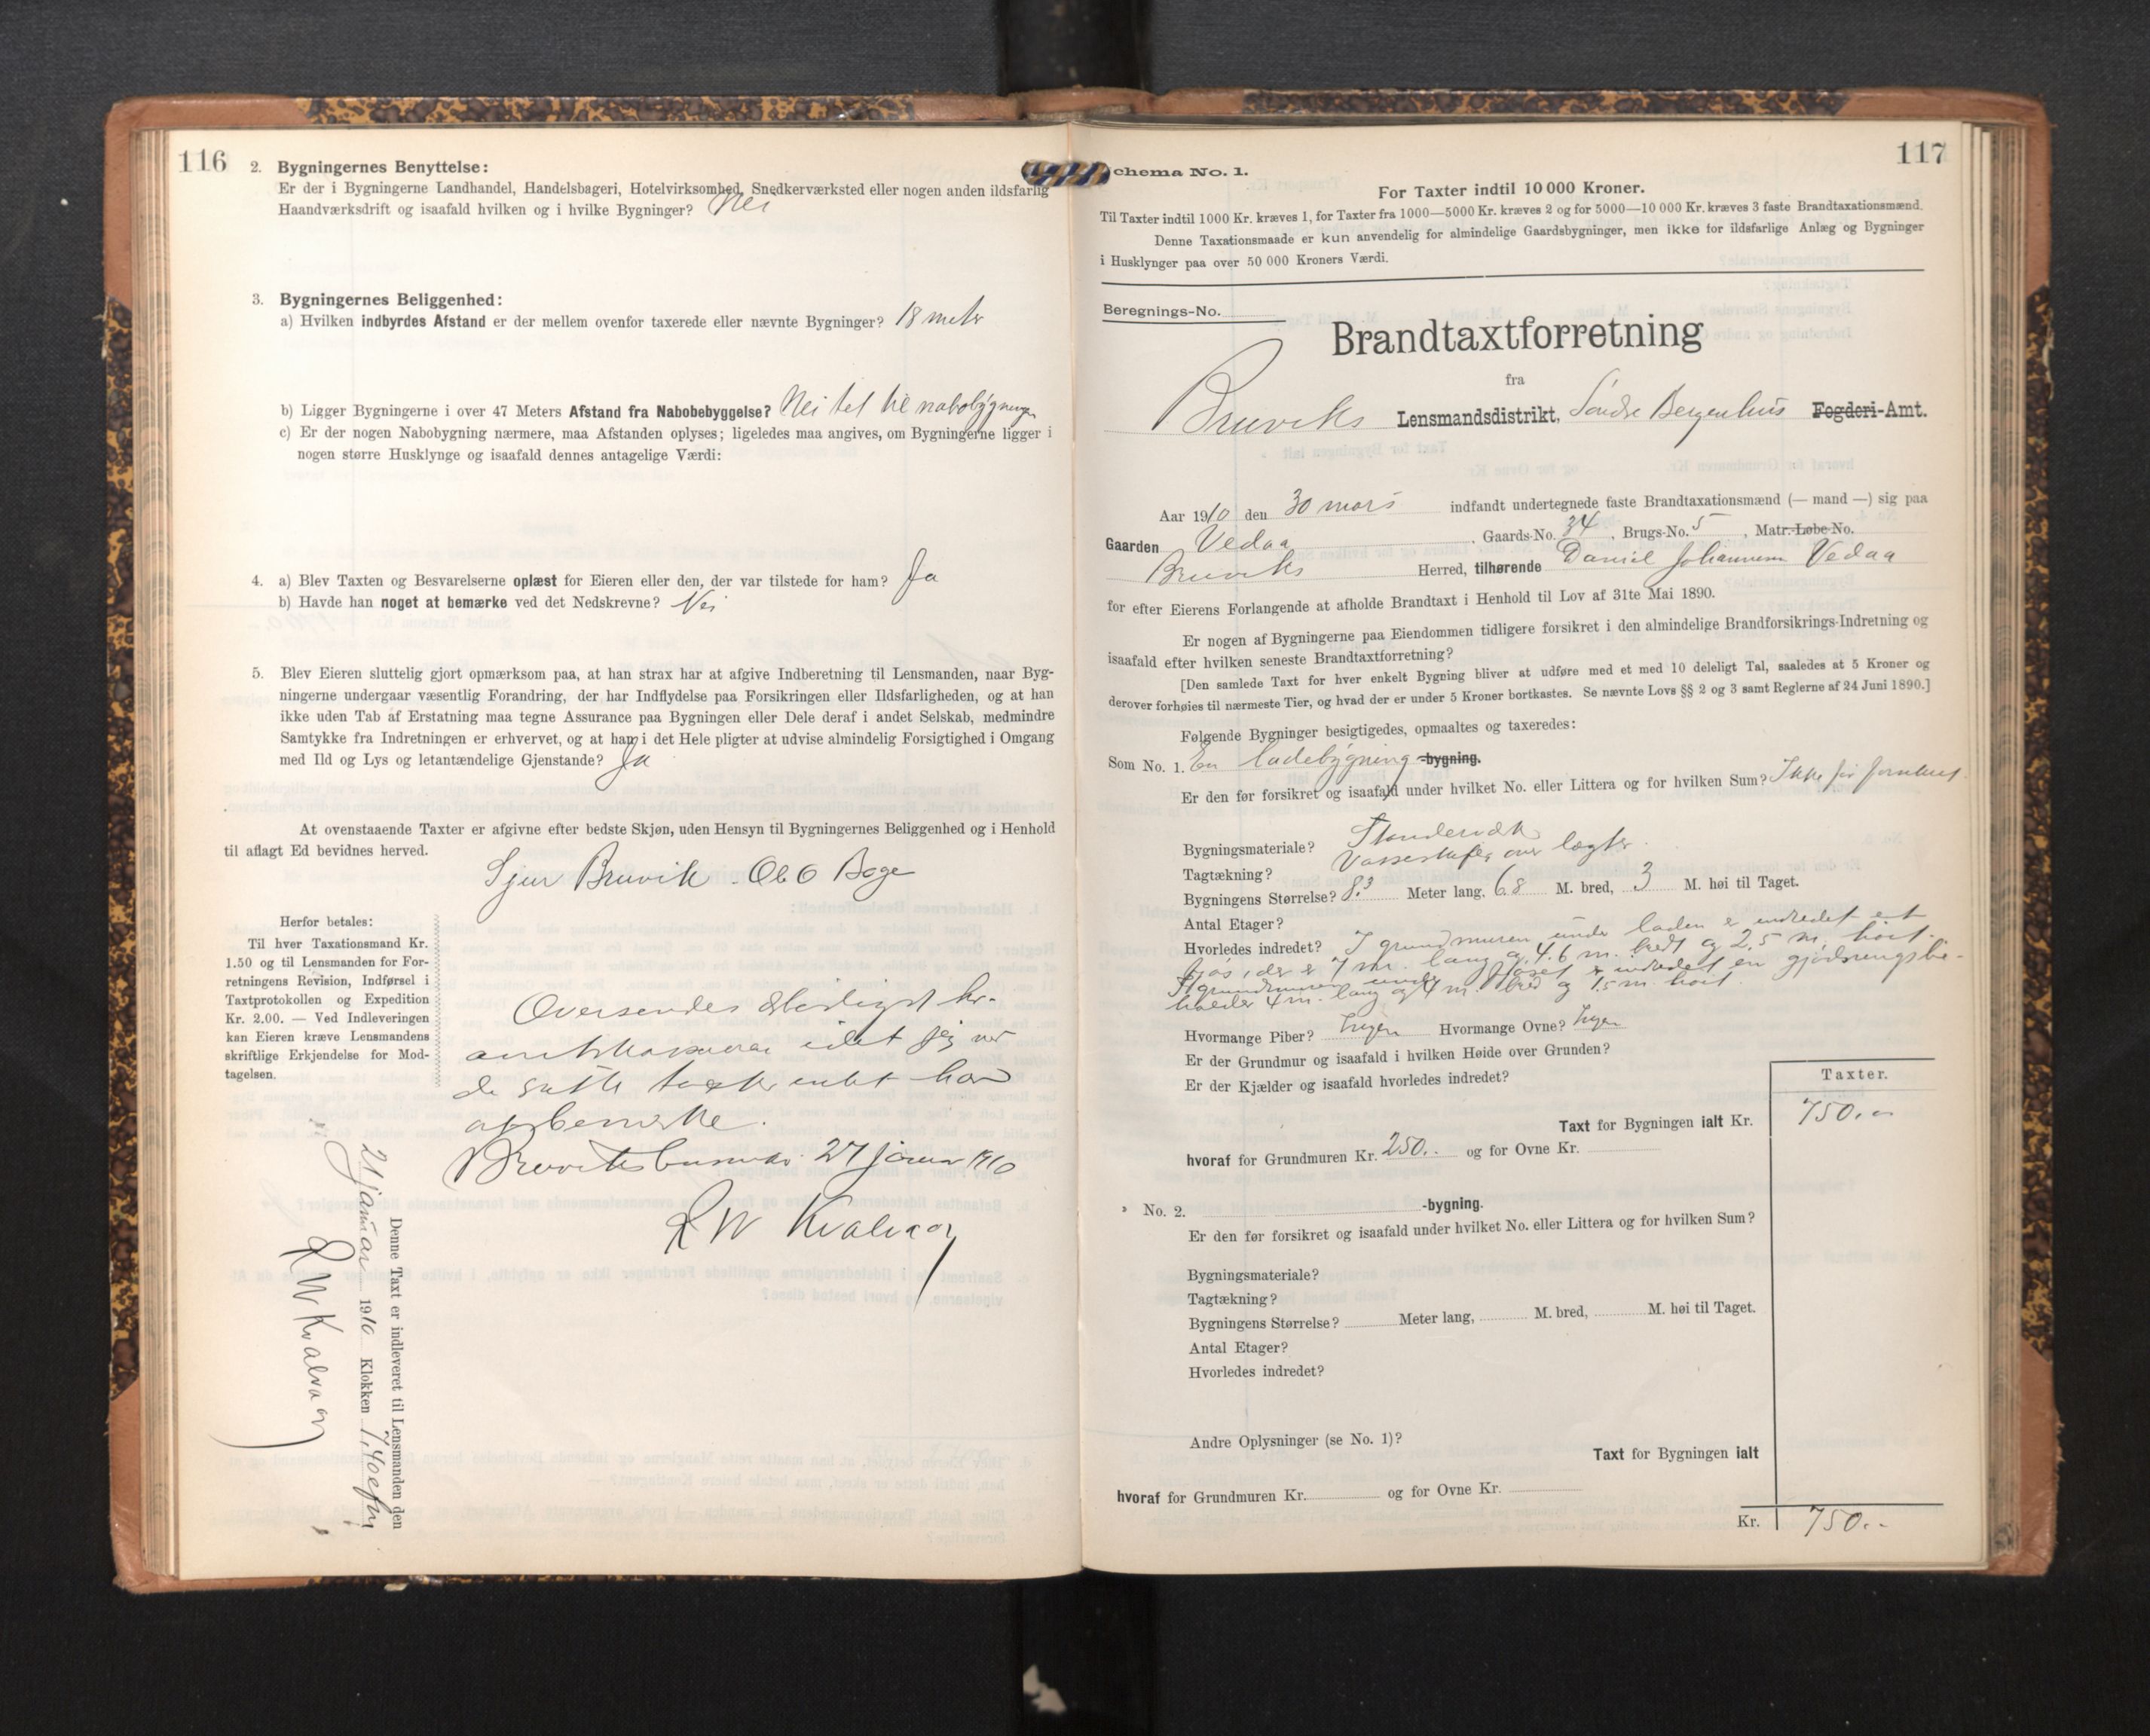 116
2. Bygningernes Benyttelse:
Er der i Bygningerne Landhandel, Handelsbageri, Hotelvirksomhed, Snedkerværksted eller nogen anden ildsfarlig
Haandværksdrift og isaafald hvilken og i hvilke Bygninger? Nei
3. Bygningernes Beliggenhed:
a) Hvilken indbyrdes Afstand er der mellem ovenfor taxerede eller nævnte Bygninger? 18 meter
b) Ligger Bygningerne i over 47 Meters Afstand fra Nabobebyggelse? Nei tet til nabobygninger
c) Er der nogen Nabobygning nærmere, maa Afstanden oplyses; ligeledes maa angives, om Bygningerne ligger i
nogen større Husklynge og isaafald dennes antagelige Værdi:
4. a) Blev Taxten og Besvarelserne oplæst for Eieren eller den, der var tilstede for ham? Ja
b) Havde han noget at bemærke ved det Nedskrevne? Nei
5. Blev Eieren sluttelig gjort opmærksom paa, at han strax har at afgive Indberetning til Lensmanden, naar Byg-
ningerne undergaar væsentlig Forandring, der har Indflydelse paa Forsikringen eller Ildsfarligheden, og at han
ikke uden Tab af Erstatning maa tegne Assurance paa Bygningen eller Dele deraf i andet Selskab, medmindre
Samtykke fra Indretningen er erhvervet, og at han i det Hele pligter at udvise almindelig Forsigtighed i Omgang
med Ild og Lys og letantændelige Gjenstande? Ja
At ovenstaaende Taxter er afgivne efter bedste Skjøn, uden Hensyn til Bygningernes Beliggenhed og i Henhold
til aflagt Ed bevidnes herved.
Sjur Bruvik. Ole O Boge
Herfor betales:
Til hver Taxationsmand Kr.
1.50 og til Lensmanden for For-
retningens Revision, Indførsel i
Taxtprotokollen og Expedition
Kr. 2.00. — Ved Indleveringen
kan Eieren kræve Lensmandens
skriftlige Erkjendelse for Mod-
tagelsen.
Oversendes ærbødigst hr.
amtskasserer idet jeg ved
de satte takster intet har
at bemerke.
27 januar 1910
R W Kvalvaag
Denne Taxt er indleveret til Lensmanden den
21 januar 1910 Klokken 7,40 efm
R W Kvalvaag
117
Schema No. 1.
For Taxter indtil 10 000 Kroner.
Til Taxter indtil 1000 Kr. kræves 1, for Taxter fra 1000—5000 Kr. kræves 2 og for 5000—10 000 Kr. kræves 3 faste Brandtaxationsmænd.
Denne Taxationsmaade er kun anvendelig for almindelige Gaardsbygninger, men ikke for ildsfarlige Anlæg og Bygninger
i Husklynger paa over 50 000 Kroners Værdi.
Beregnings-No.
Brandtaxtforretning
fra
Bruviks Lensmandsdistrikt, Søndre Bergenhus Fogderi-Amt.
Aar 1910 den 30 mars indfandt undertegnede faste Brandtaxationsmænd (— mand —) sig paa
Gaarden Vedaa, Gaards-No. 34, Brugs-No. 5, Matr.-Løbe-No.
Bruviks Herred, tilhørende Daniel Johannesen Vedaa
for efter Eierens Forlangende at afholde Brandtaxt i Henhold til Lov af 31te Mai 1890.
Er nogen af Bygningerne paa Eiendommen tidligere forsikret i den almindelige Brandforsikrings-Indretning og
isaafald efter hvilken seneste Brandtaxtforretning?
[Den samlede Taxt for hver enkelt Bygning bliver at udføre med et med 10 deleligt Tal, saaledes at 5 Kroner og
derover forhøies til nærmeste Tier, og hvad der er under 5 Kroner bortkastes. Se nævnte Lovs §§ 2 og 3 samt Reglerne af 24 Juni 1890.]
Følgende Bygninger besigtigedes, opmaaltes og taxeredes:
Som No. 1. En ladebygning -bygning.
Er den før forsikret og isaafald under hvilket No. eller Littera og for hvilken Sum? Ikke før forsikret.
Bygningsmateriale? Standervæk
Tagtækning? over lægter.
Bygningens Størrelse? 8.3 Meter lang, 6.8 M. bred, 3 M. høi til Taget.
Antal Etager?
Hvorledes indredet? I grundmuren under laden er indredet et
fjøs, der er 7 m. lang og 4.6 m. bredt og 2.5 m. høit.
I grundmuren under fjøset er indredet en gjødsningsbe-
holder 4 m. lang og 4 m. bred og 1.5 m. høit.
Hvormange Piber? Ingen Hvormange Ovne? Ingen
Er der Grundmur og isaafald i hvilken Høide over Grunden?
Er der Kjælder og isaafald hvorledes indredet?
Taxter.
Taxt for Bygningen ialt Kr. 750.-
hvoraf for Grundmuren Kr. 250.- og for Ovne Kr.
" No. 2. -bygning.
Er den før forsikret og isaafald under hvilket No. eller Littera og for hvilken Sum?
Bygningsmateriale?
Tagtækning?
Bygningens Størrelse? Meter lang, M. bred, M. høi til Taget.
Antal Etager?
Hvorledes indredet?
Andre Oplysninger (se No. 1)?
Taxt for Bygningen ialt
hvoraf for Grundmuren Kr. og for Ovne Kr.
Kr. 750.-